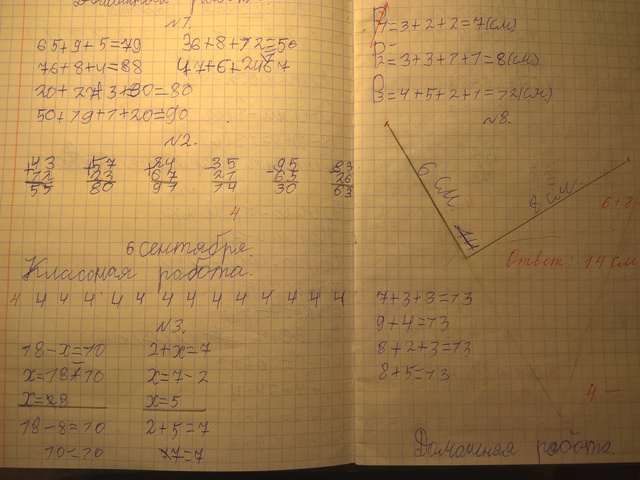 Домашняя работа.
№1.
65+9+5=79 36+8+12=56
76+8+4=88 47+6+
20+27+3+30=80
50+19+1+20=90
№2.
+43 +57 +24 -35 -95 -83
12 23 67 21 65 26
55 80 91 14 30 63
4
6 сентября.
Классная работа.
4 4 4 4 4 4 4 4 4 4 4 4 4 4
№3.
18-x=10 2+x=7
x=18+10 x=7-2
x=28 x=5
18-8=10 2+5=7
10=10 7=7
P1=3+2+2=7(см)
P2=3+3+1+1=8(см)
P3=4+5+2+1=12(см)
№8.
6 см.
8 см.
6+8=
Ответ: 14 см
7+3+3=13
9+4=13
8+2+3=13
8+5=13
4
Домашняя работа.